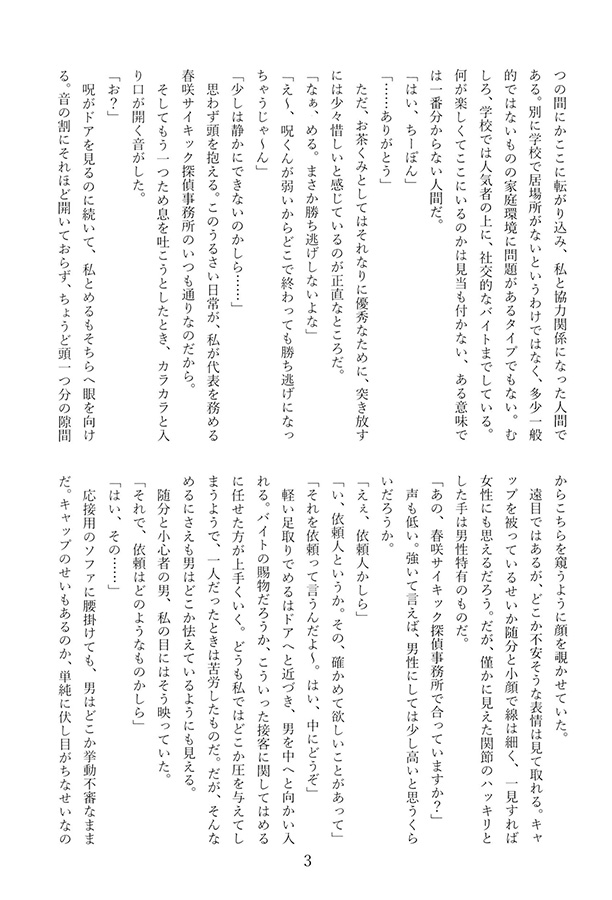 つの間にかここに転がり込み、私と協力関係になった人間で
ある。別に学校で居場所がないというわけではなく、多少一般
的ではないものの家庭環境に問題があるタイプでもない。む
しろ、学校では人気者の上に、社交的なバイトまでしている。
何が楽しくてここにいるのかは見当も付かない、ある意味で
は一番分からない人間だ。
「はい、ちーぽん」
「……ありがとう」
ただ、お茶くみとしてはそれなりに優秀なために、突き放す
には少々惜しいと感じているのが正直なところだ。
「なぁ、める。まさか勝ち逃げしないよな」
「え〜、呪くんが弱いからどこで終わっても勝ち逃げになっ
ちゃうじゃ〜ん」
「少しは静かにできないのかしら……」
思わず頭を抱える。このうるさい日常が、私が代表を務める
春咲サイキック探偵事務所のいつも通りなのだから。
そしてもう一つため息を吐こうとしたとき、カラカラと入
り口が開く音がした。
「お？」
呪がドアを見るのに続いて、私とめるもそちらへ眼を向け
る。音の割にそれほど開いておらず、ちょうど頭一つ分の隙間
からこちらを窺うように顔を覗かせていた。
遠目ではあるが、どこか不安そうな表情は見て取れる。キャ
ップを被っているせいか随分と小顔で線は細く、一見すれば
女性にも思えるだろう。だが、僅かに見えた関節のハッキリと
した手は男性特有のものだ。
「あの、春咲サイキック探偵事務所で合っていますか？」
声も低い。強いて言えば、男性にしては少し高いと思うくら
いだろうか。
「えぇ、依頼人かしら」
「い、依頼人というか。その、確かめて欲しいことがあって」
「それを依頼って言うんだよ〜。はい、中にどうぞ」
軽い足取りでめるはドアへと近づき、男を中へと向かい入
れる。バイトの賜物だろうか、こういった接客に関してはめる
に任せた方が上手くいく。どうも私ではどこか圧を与えてし
まうようで、一人だったときは苦労したものだ。だが、そんな
めるにさえも男はどこか怯えているようにも見える。
随分と小心者の男、私の目にはそう映っていた。
「それで、依頼はどのようなものかしら」
「はい、その……」
応接用のソファに腰掛けても、男はどこか挙動不審なまま
だ。キャップのせいもあるのか、単純に伏し目がちなせいなの
3